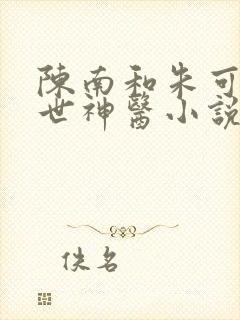 陳南和朱可
世神醫小說
佚名